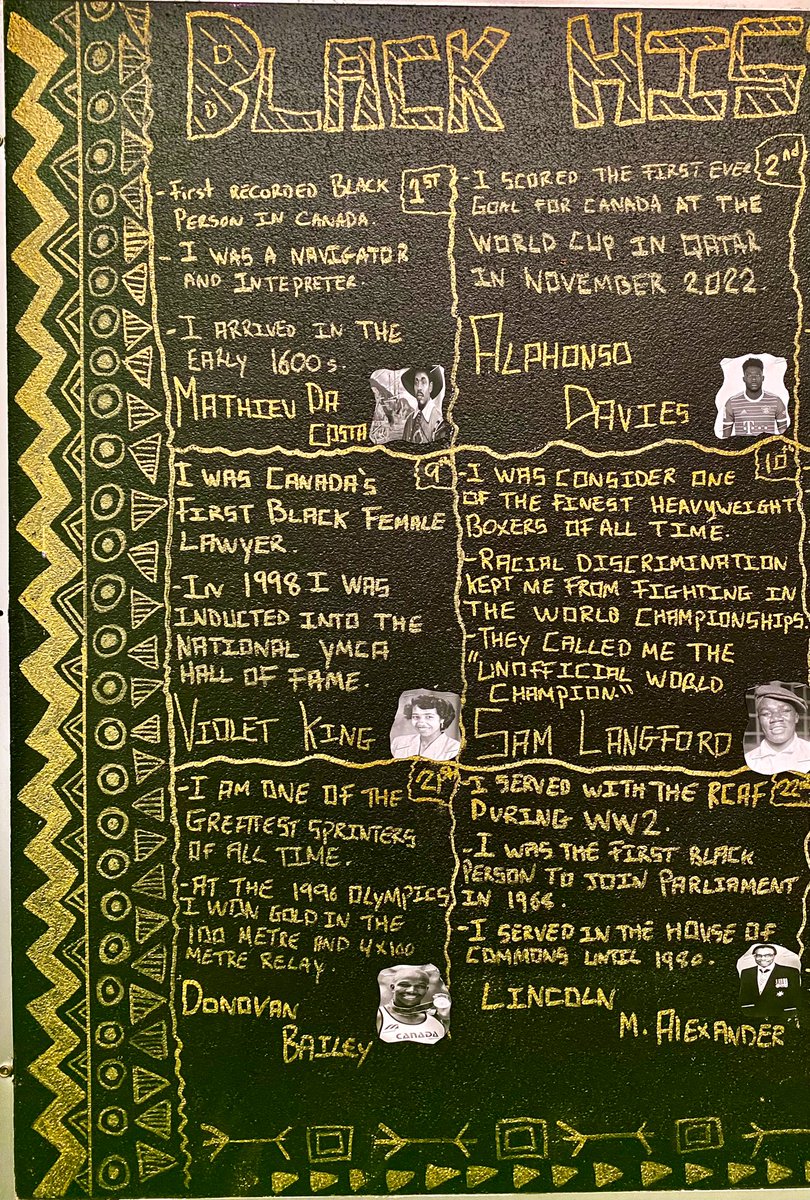 BLACK HIS
1ST
-First recorded Black
Person in Canada.
-I was a navigator
and Intepreter.
-I arrived in the
early 1600s.
Mathieu Da
Costa
2nd
-I scored the first ever
goal for Canada at the
World Cup in Qatar
in November 2022.
Alphonso
Davies
9th
I was Canada's
first Black Female
Lawyer.
-In 1998 I was
inducted into the
National YMCA
Hall of Fame.
Violet King
10th
-I was consider one
of the finest heavyweight
boxers of all time.
-Racial discrimination
kept me from fighting in
the world championships.
-They called me the
"Unofficial World
Champion."
Sam Langford
21st
-I am one of the
greatest sprinters
of all time.
-At the 1996 Olympics
I won gold in the
100 metre and 4x100
metre relay.
Donovan
Bailey
CANADA
22nd
-I served with the RCAF
during WW2.
-I was the first Black
person to join Parliament
in 1968.
-I served in the House of
Commons until 1980.
Lincoln
M. Alexander